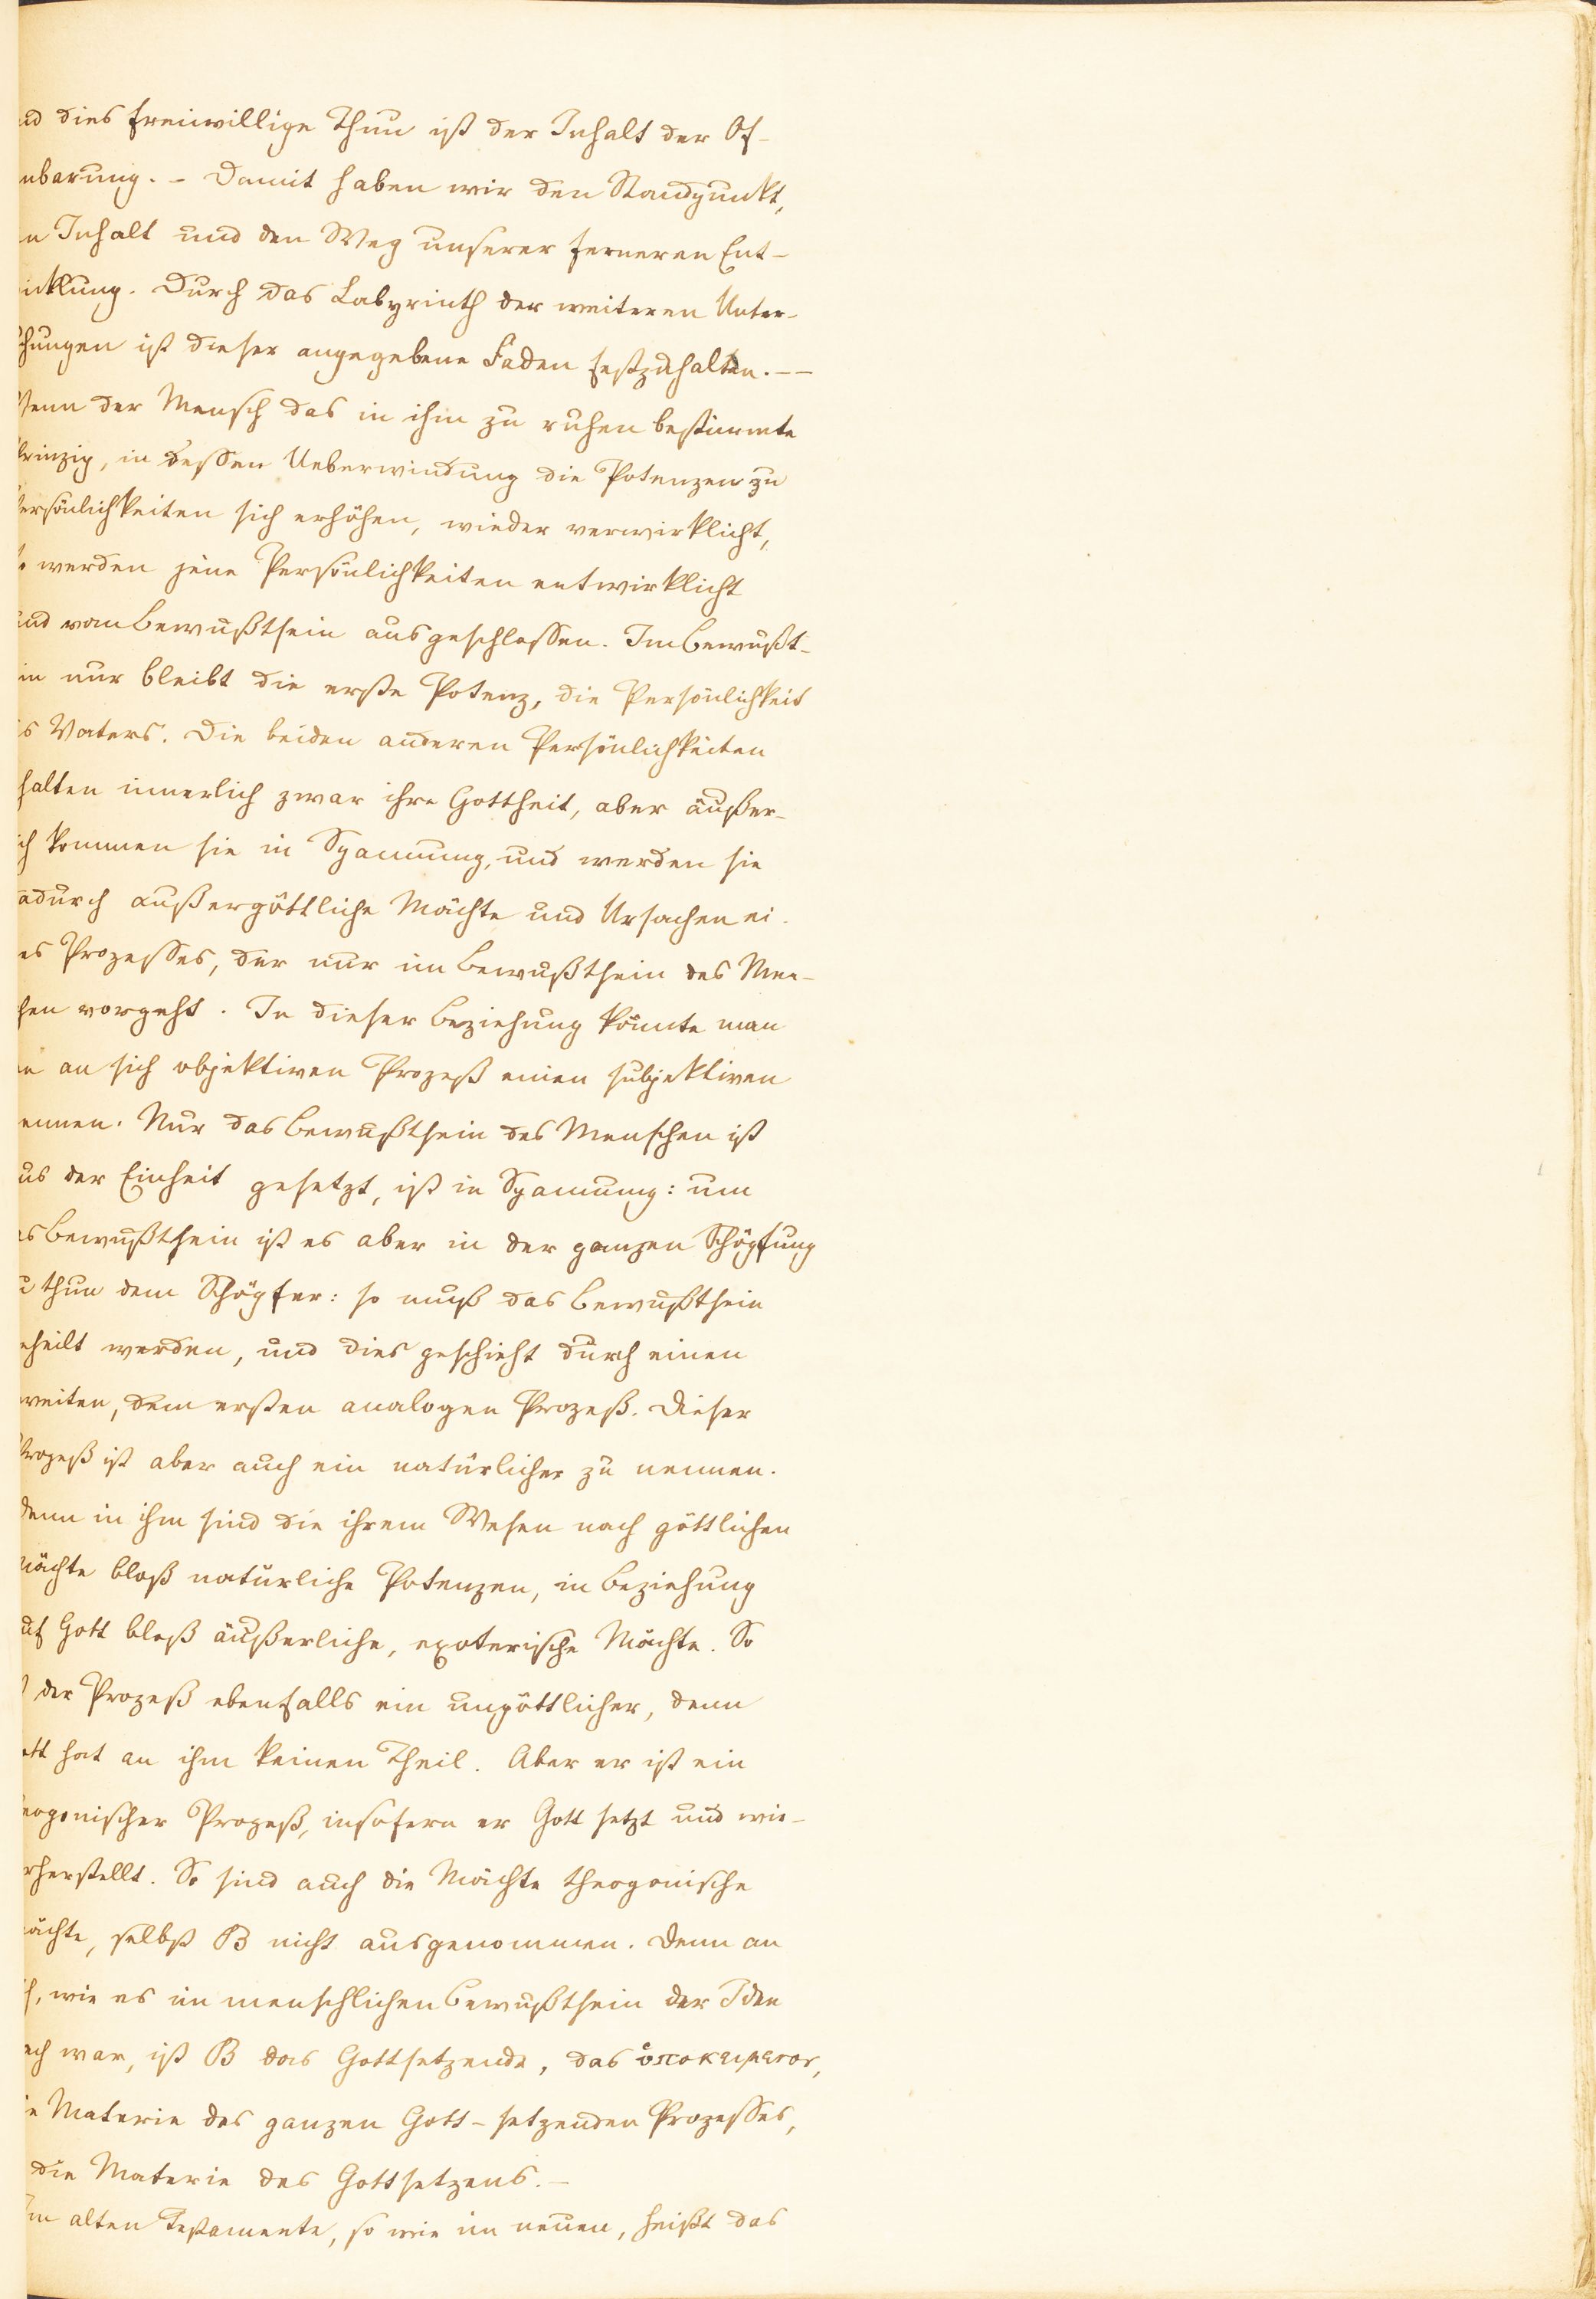 nd dies freiwillige Thun ist der Inhalt der Of-
nbarung. – Damit haben wir den Standpunkt,
n Inhalt und den Weg unserer ferneren Ent-
icklung. Durch das Labyrinth der weiteren Unter-
chungen ist dieser angegebene Faden festzuhalten. – –
Wenn der Mensch das in ihm zu ruhen bestimmte
Prinzip, in dessen Ueberwindung die Potenzen zu
Persönlichkeiten sich erhöhen, wieder verwirklicht,
so werden jene Persönlichkeiten entwirklicht
und vom Bewußtsein ausgeschlossen. Im Bewußt-
in nur bleibt die erste Potenz, die Persönlichkeit
s Vaters. Die beiden anderen Persönlichkeiten
halten innerlich zwar ihre Gottheit, aber äußer-
ich kommen sie in Spannung, und werden sie
adurch außergöttliche Mächte und Ursachen ei-
es Prozesses, der nur im Bewußtsein des Men-
hen vorgeht. In dieser Beziehung könnte man
en an sich objektiven Prozeß einen subjektiven
ennen. Nur das Bewußtsein des Menschen ist
us der Einheit gesetzt, ist in Spannung: um
as Bewußtsein ist es aber in der ganzen Schöpfung
u thun dem Schöpfer: so muß das Bewußtsein
eheilt werden, und dies geschieht durch einen
weiten, dem ersten analogen Prozeß. Dieser
Prozeß ist aber auch ein natürlicher zu nennen.
denn in ihm sind die ihrem Wesen nach göttlichen
Mächte bloß natürliche Potenzen, in Beziehung
uf Gott bloß äußerliche, exoterische Mächte. So
der Prozeß ebenfalls ein ungöttlicher, denn
ott hat an ihm keinen Theil. Aber er ist ein
eogonischer Prozeß, insofern er Gott setzt und wie-
rherstellt. So sind auch die Mächte theogonische
ächte, selbst B nicht ausgenommen. Denn an
ch, wie es im menschlichen Bewußtsein der Idee
ach war, ist B das Gottsetzende, das ὑποκείμενον,
ie Materie des ganzen Gott-setzenden Prozesses,
die Materie des Gottsetzens. –
Im alten Testamente, so wie im neuen, heißt das